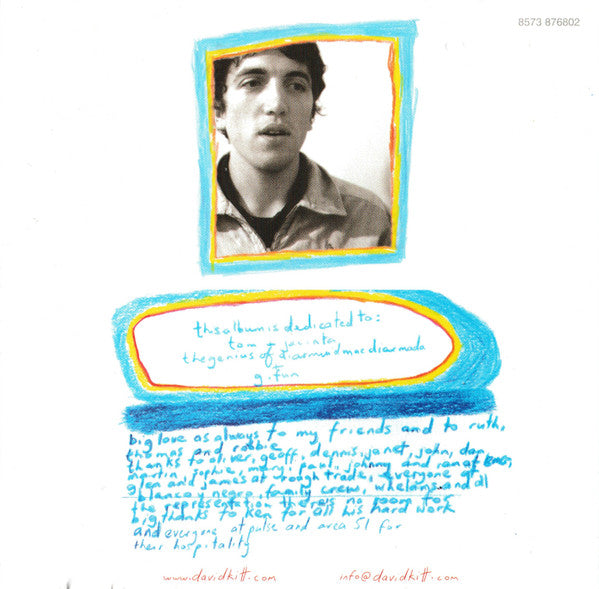 8573 876802
this album is dedicated to:
tom + jacinta
the genius of diarmuid mac diarmada
+
g. fun
big love as always to my friends and to ruth,
thomas and robbie
thanks to oliver, geoff, dennis, janet, john, dan,
martin, sophie, mary, paul, johnny and ran at
glen and james at rough trade, everyone at
blanco y negro, family crew, whelans and all
the representation theres no room for
big thanks to ken for all his hard work
and everyone at pulse and area 51 for
their hospitality
www.davidkitt.com
info@davidkitt.com